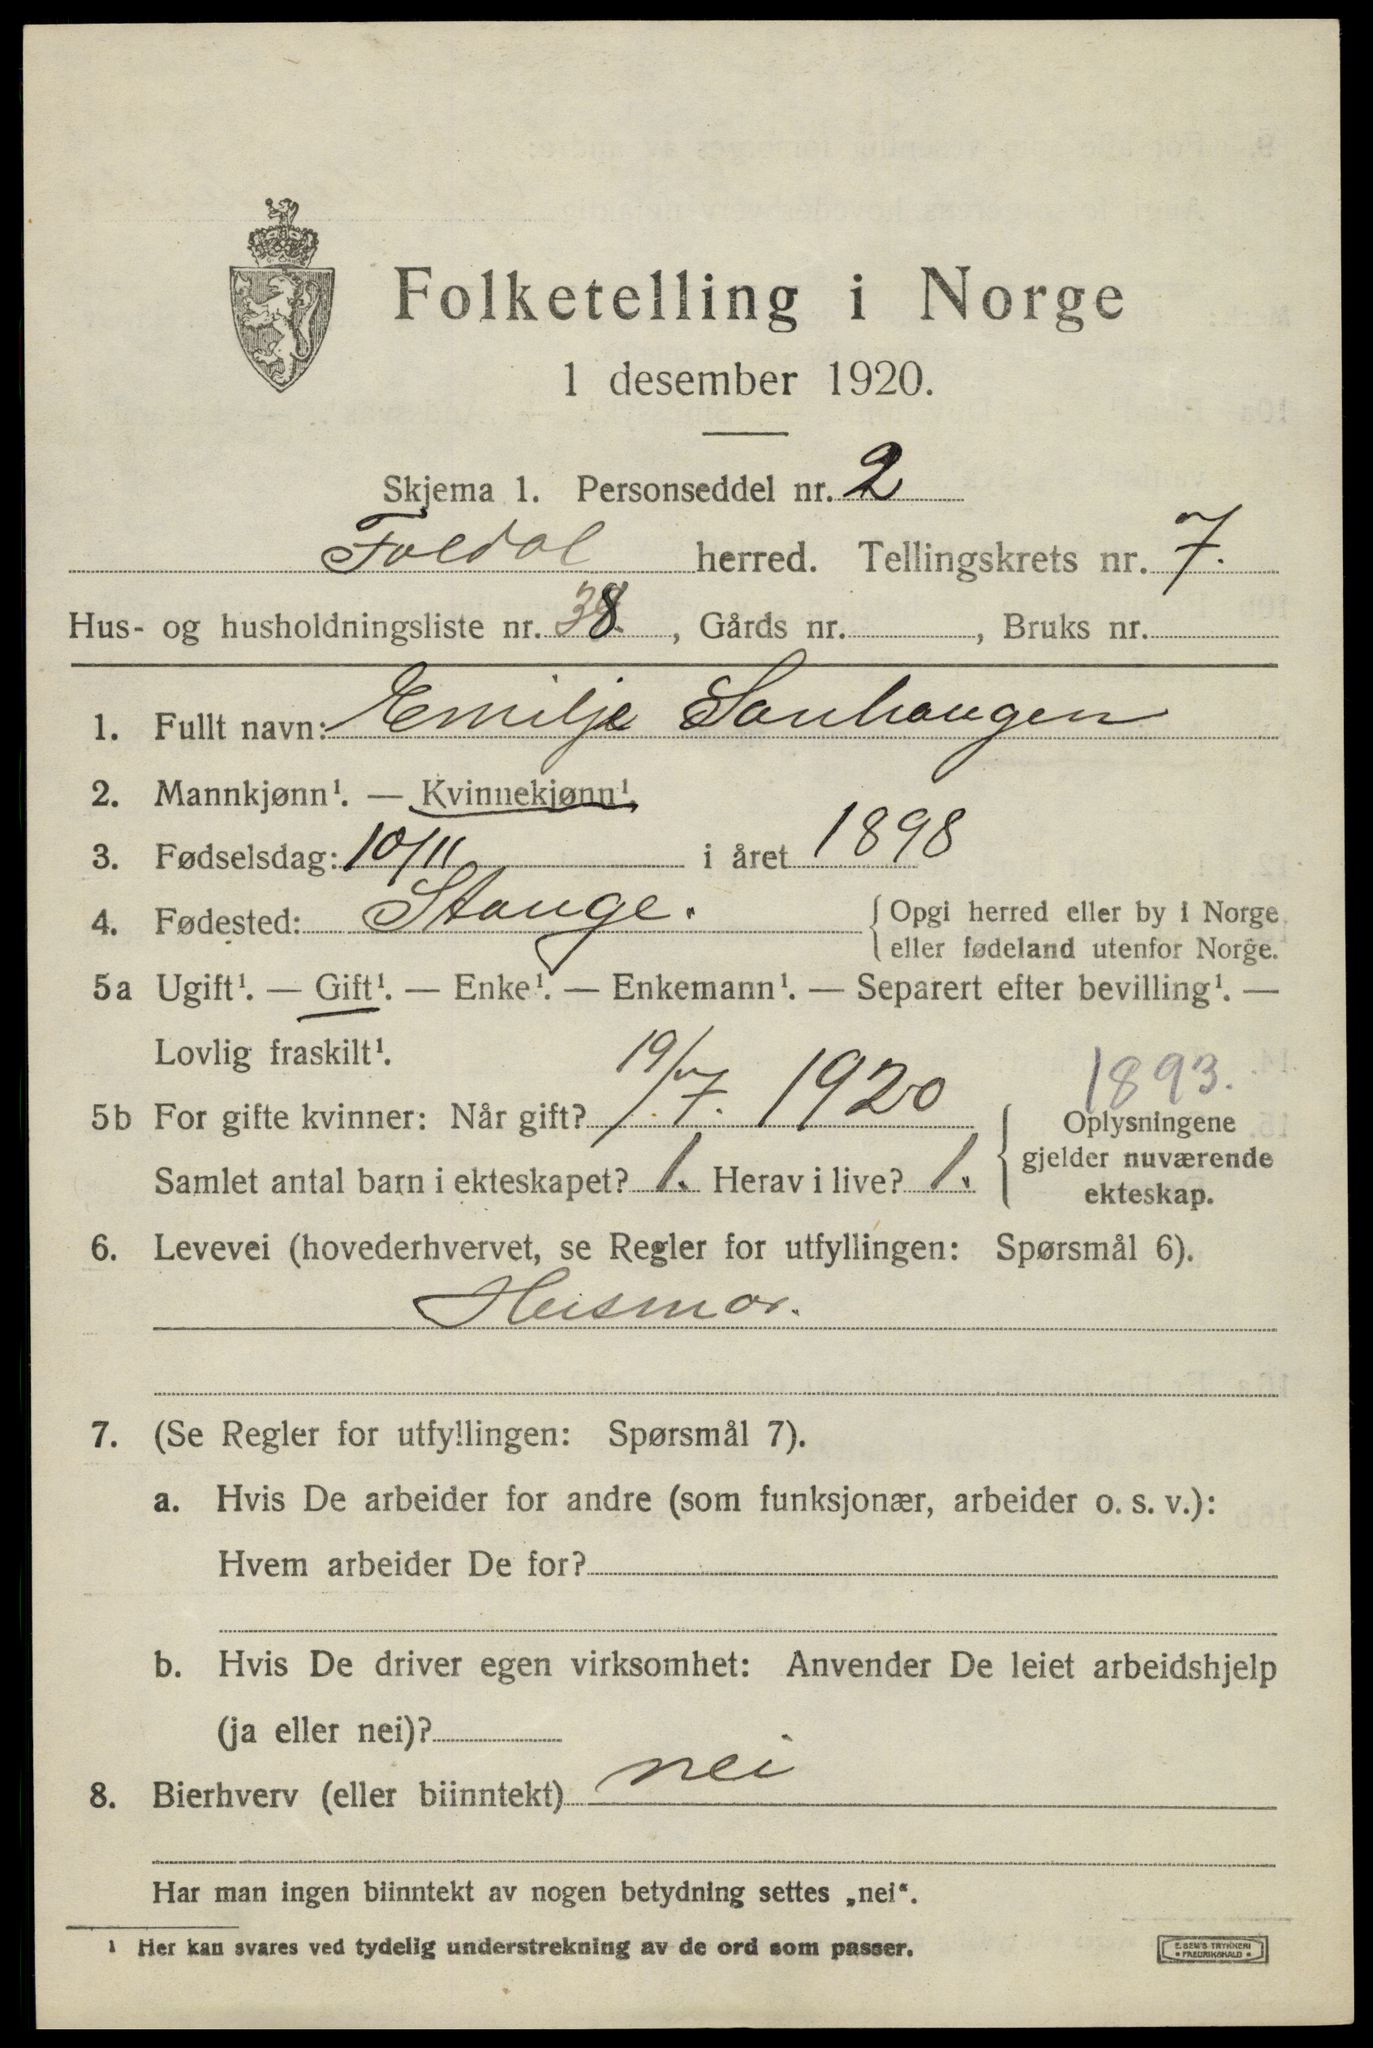 Folketelling i Norge
1 desember 1920.
Skjema 1. Personseddel nr. 2
Foldal herred. Tellingskrets nr. 7.
Hus- og husholdningsliste nr. 38, Gårds nr. , Bruks nr.
1. Fullt navn: Emilje Sanhaugen
2. Mannkjønn¹. — Kvinnekjønn¹.
3. Fødselsdag: 10/11 i året 1898
4. Fødested: Stange. Opgi herred eller by i Norge
eller fødeland utenfor Norge.
5a Ugift¹. — Gift¹. — Enke¹. — Enkemann¹. — Separert efter bevilling¹. —
Lovlig fraskilt¹.
1893.
5b For gifte kvinner: Når gift? 19/7. 1920 Oplysningene
gjelder nuværende
Samlet antal barn i ekteskapet? 1. Herav i live? 1. ekteskap.
6. Levevei (hovederhvervet, se Regler for utfyllingen: Spørsmål 6).
Husmor.
7. (Se Regler for utfyllingen: Spørsmål 7).
a. Hvis De arbeider for andre (som funksjonær, arbeider o. s. v.):
Hvem arbeider De for?
b. Hvis De driver egen virksomhet: Anvender De leiet arbeidshjelp
(ja eller nei)?
8. Bierhverv (eller biinntekt) nei
Har man ingen biinntekt av nogen betydning settes „nei“.
¹ Her kan svares ved tydelig understrekning av de ord som passer.
E. SEM'S TRYKKERI
• FREDRIKSHALD •